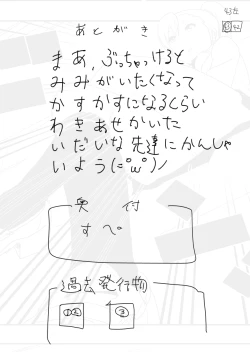 あとがき
まあ,ぶっちゃっけると
みみがいたくなって
かすかすになるくらい
わきあせかいた
いだいな先達にかんしゃ
いよう(=°ω°)ノ
奥付
すぺ
過去発行物
①②
③